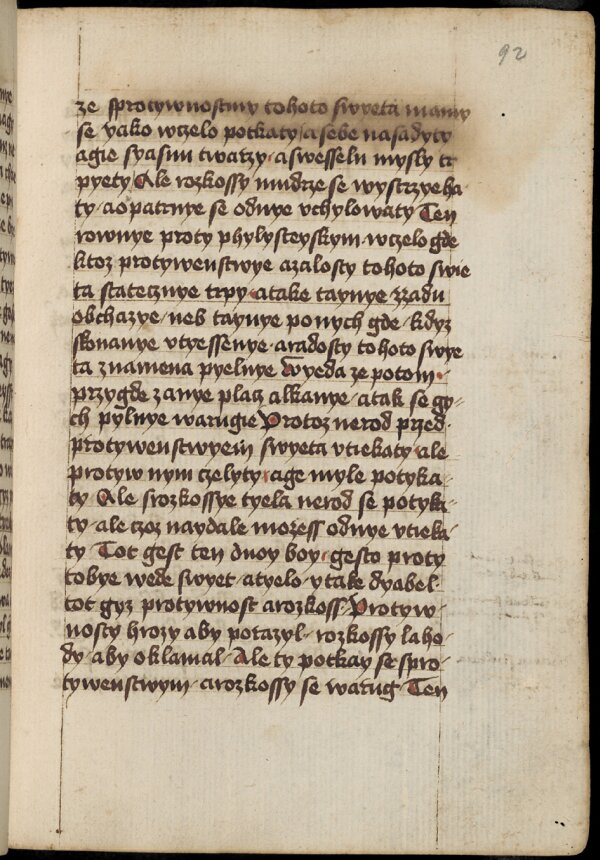 92
ze sprotywnostmy tohoto swyeta mamy
se yako wczelo potkaty a sebe nasadyty
agie syasnu twarzy · a swesselu mysly tr
pyety Ale rozkossy mudrze se wystrzyeha
ty · a opatrnye se odnye vchylowaty Ten
rownye proty phylysteyskym · wczelo gde
ktoz protywenstwye a zalosty tohoto swie
ta statecznye trpy · a take taynye zzadu
obchazye · neb taynye po nych gde · kdyz
skonanye vtyessenye · a radosty tohoto swye
ta znamena pyelnye Wyeda ze potom ·
przygde za nye placz a lkanye · a tak se gy
ch pylnye warugie Protoz nerod przed
protywenstwyem swyeta vtiekaty ale
protyw nym czelyty · a ge myle potyka
ty Ale srozkossye tyela nerod se potyka
ty · ale czoz naydale mozess odnye vtieka
ty Tot gest ten dwoy boy · gesto proty
tobye wede swyet · a tyelo · v take dyabel ·
tot gyz protywnost a rozkoss · Protyw
nosty hrozy aby potazyl · rozkossy laho
dy · aby oklamal · Ale ty potkay se spro
tywenstwym · a rozkossy se warug · Ten